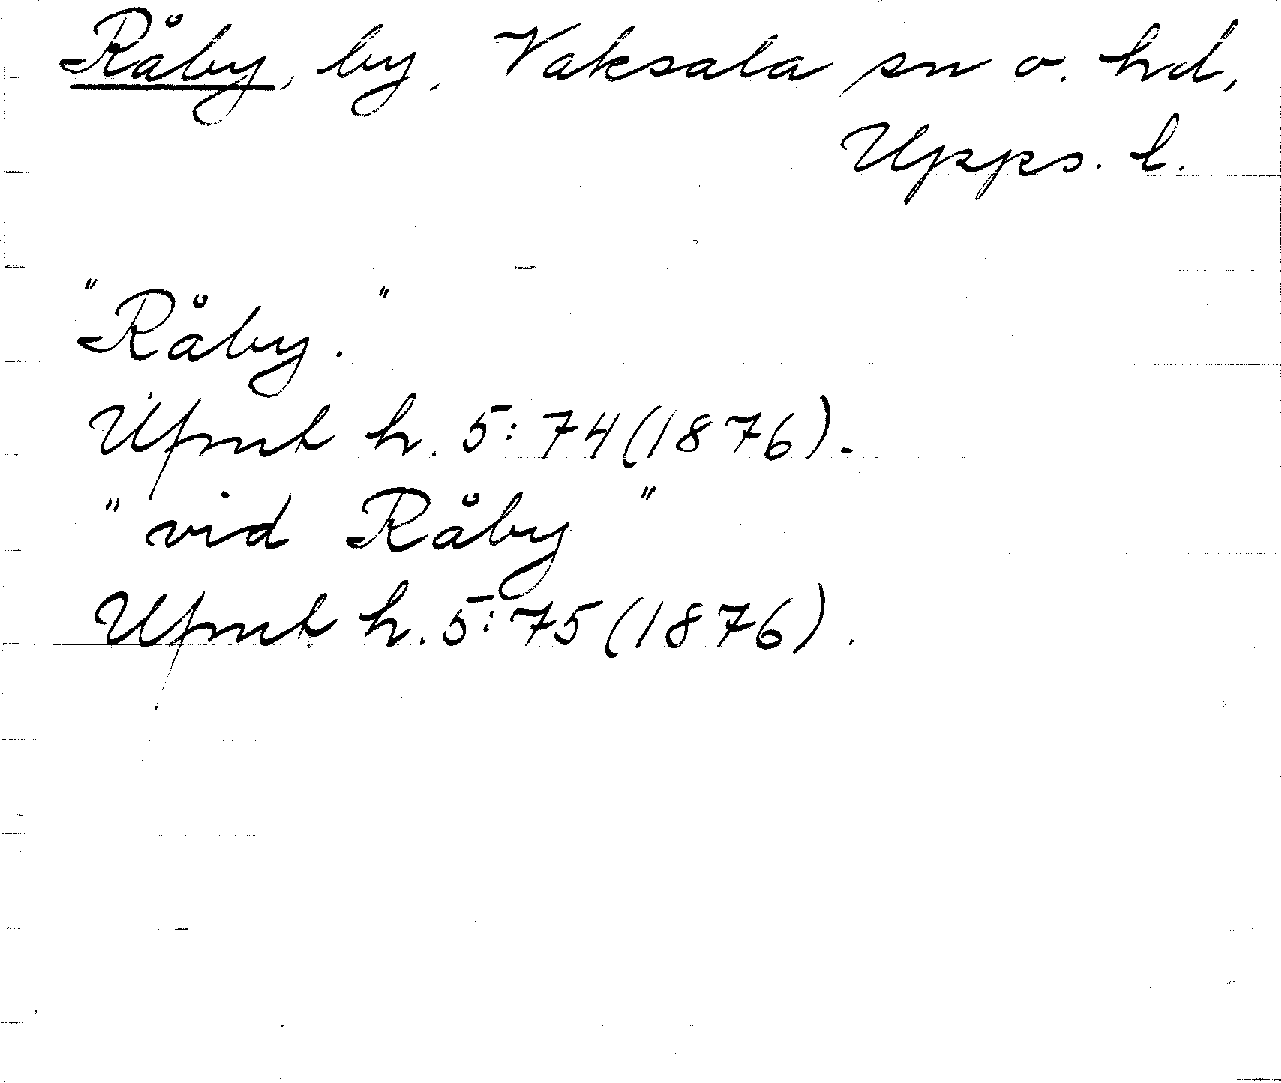 Råby, by, Vaksala sn o. hd,
Upps. l.
"Råby."
Ufmt h. 5:74 (1876).
"vid Råby"
Ufmt h. 5:75 (1876).